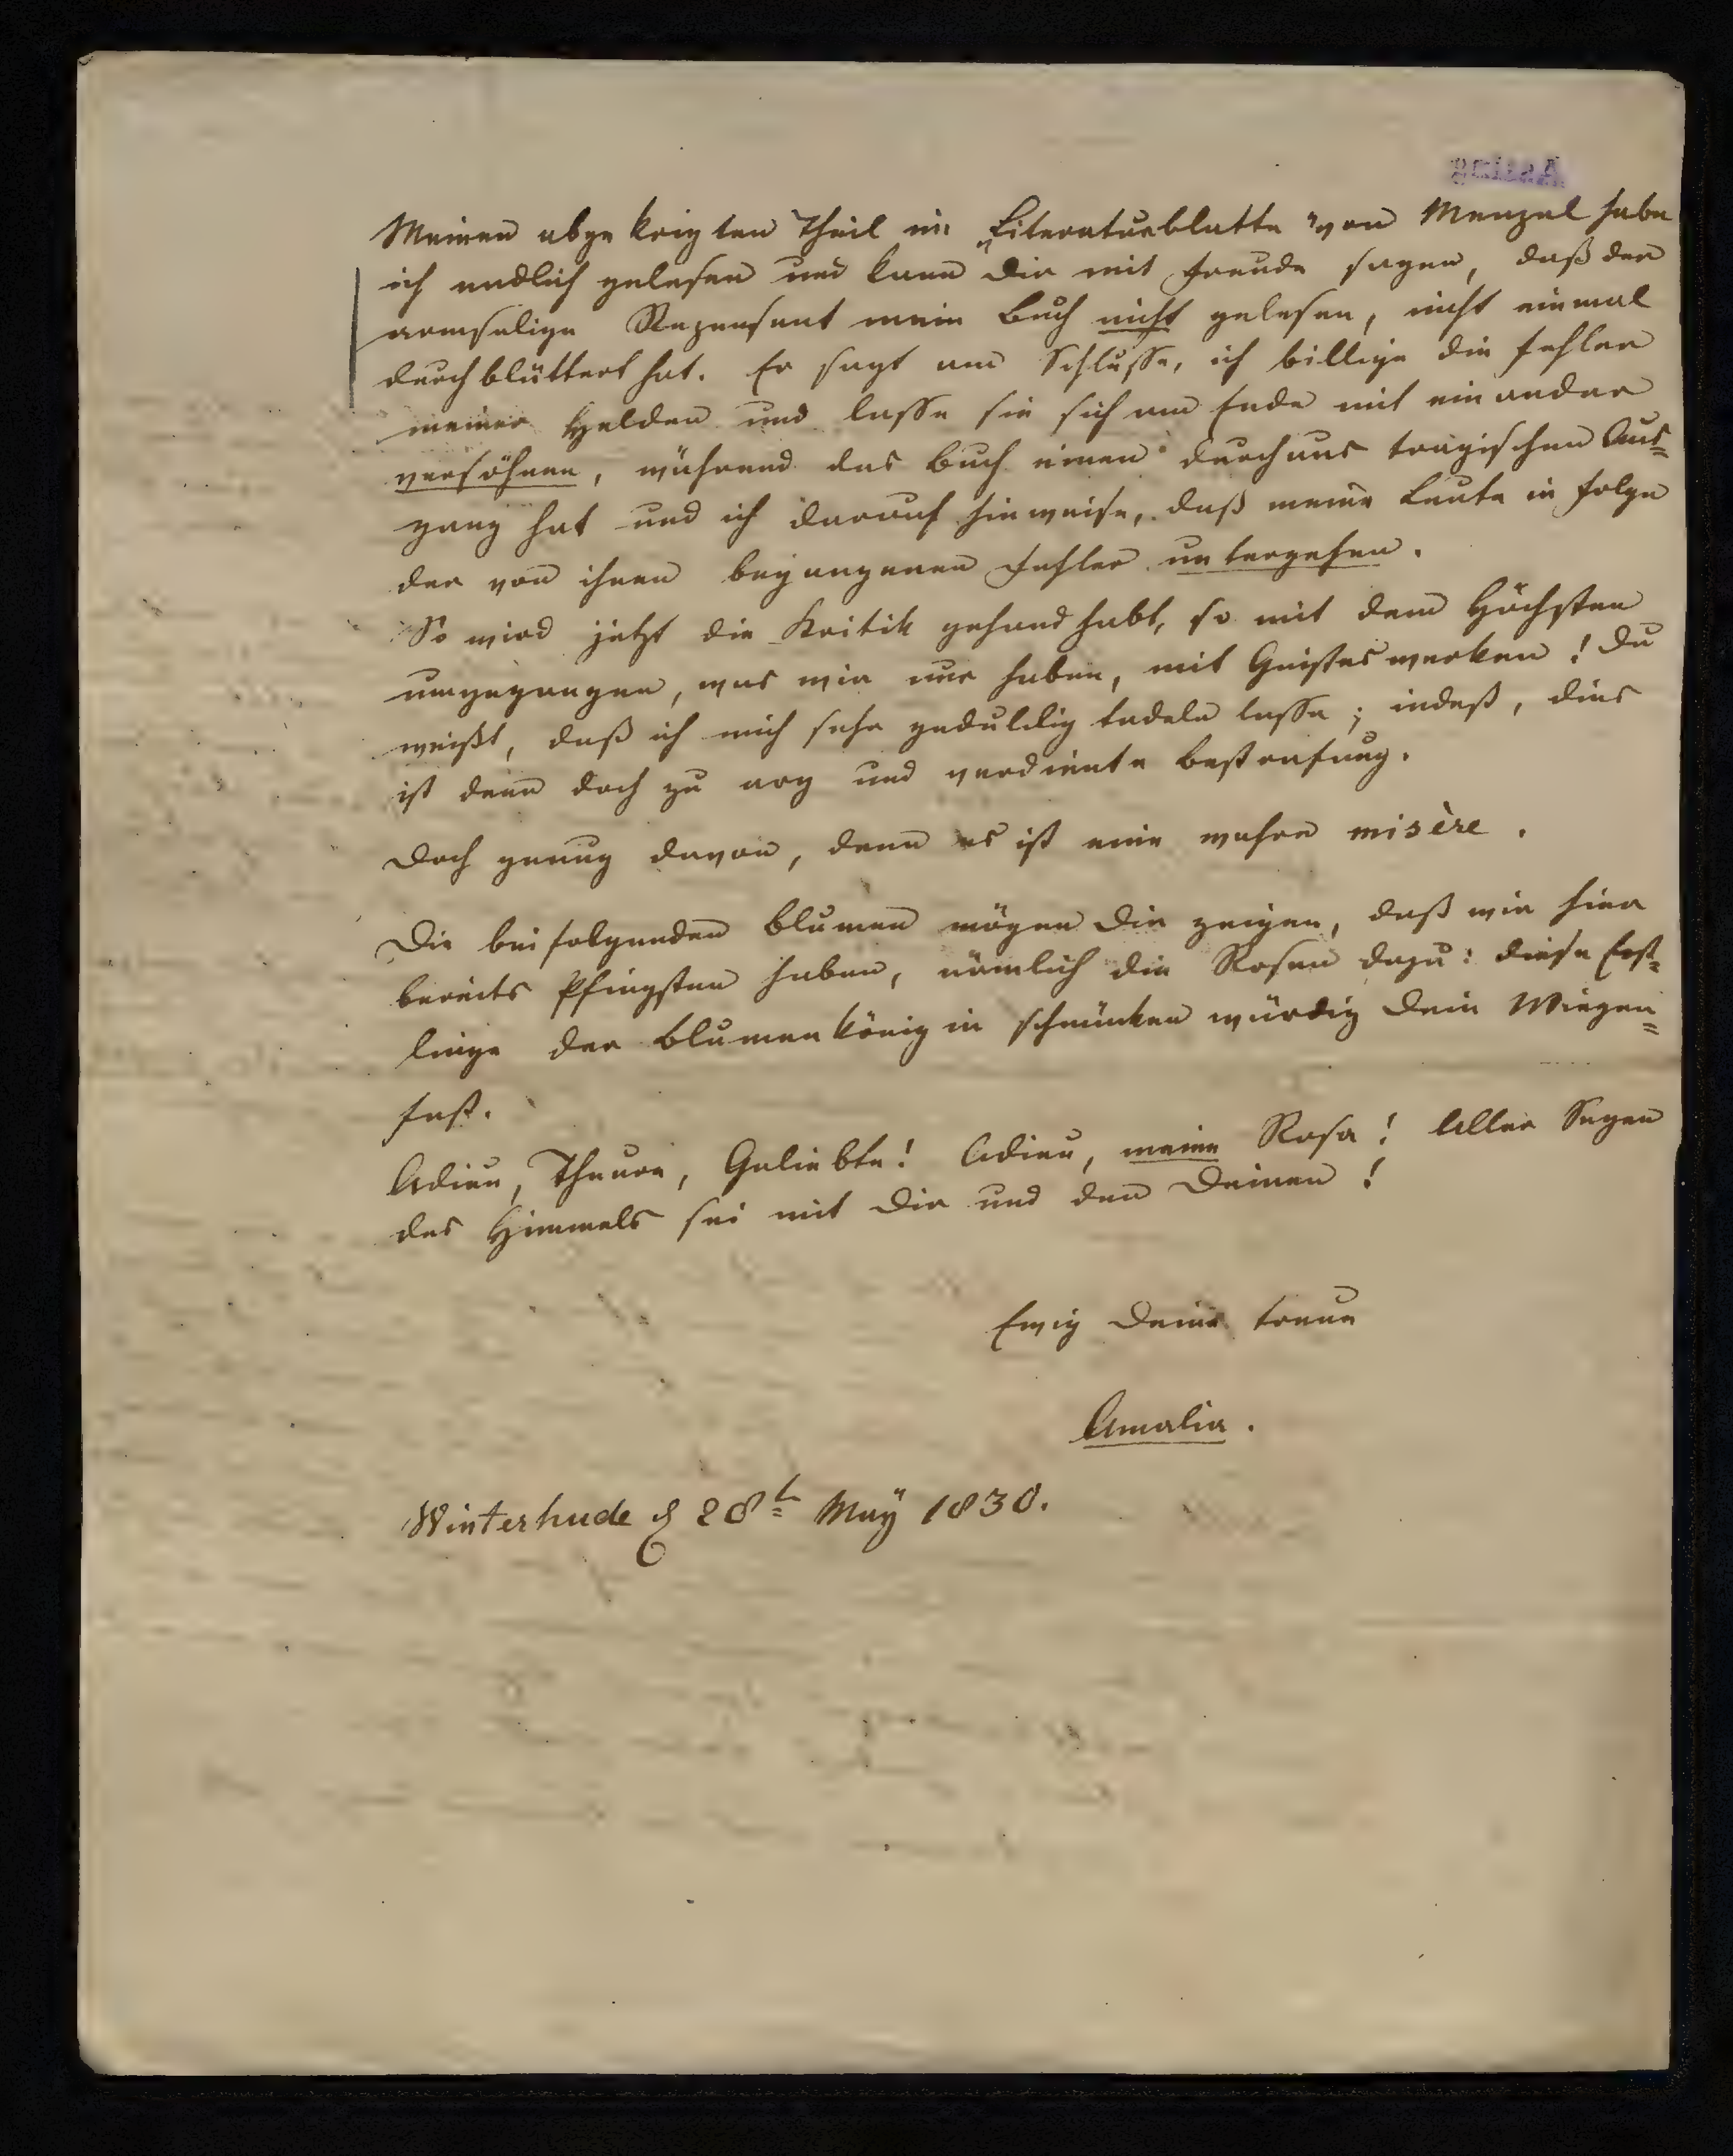 Assing
Meinen abgekrigten Theil im „Literaturblatte" von Menzel habe
ich endlich gelesen und kann Dir mit Freude sagen, daß der
armselige Rezensent mein Buch nicht gelesen, nicht einmal
durchblättert hat. Er sagt am Schlusse, ich billige die Fehler
meiner Helden und lasse sie sich am Ende mit einander
versöhnen, während das Buch einen durchaus tragischen Aus=
gang hat und ich darauf hinweise, daß meine Leute in Folge
der von ihnen begangenen Fehler untergehen.
So wird jetzt die Kritik gehandhabt, so mit dem Höchsten
umgegangen, was wir nur haben, mit Geisteswerken! Du
weißt, daß ich mich sehr geduldig tadeln lasse; indeß, dies
ist denn doch zu arg und verdiente Bestrafung.
Doch genug davon, denn es ist eine wahre misère.
Die beifolgenden Blumen mögen Dir zeigen, daß wir hier
bereits Pfingsten haben, nämlich die Rosen dazu: diese Erst=
linge der Blumenkönigin schmücken würdig Dein Wiegen=
fest.
Adieu, Theure, Geliebte! Adieu, meine Rosa! Aller Segen
des Himmels sei mit Dir und den Deinen!
Ewig Deine treue
Amalia.
Winterhude d 28t May 1830.